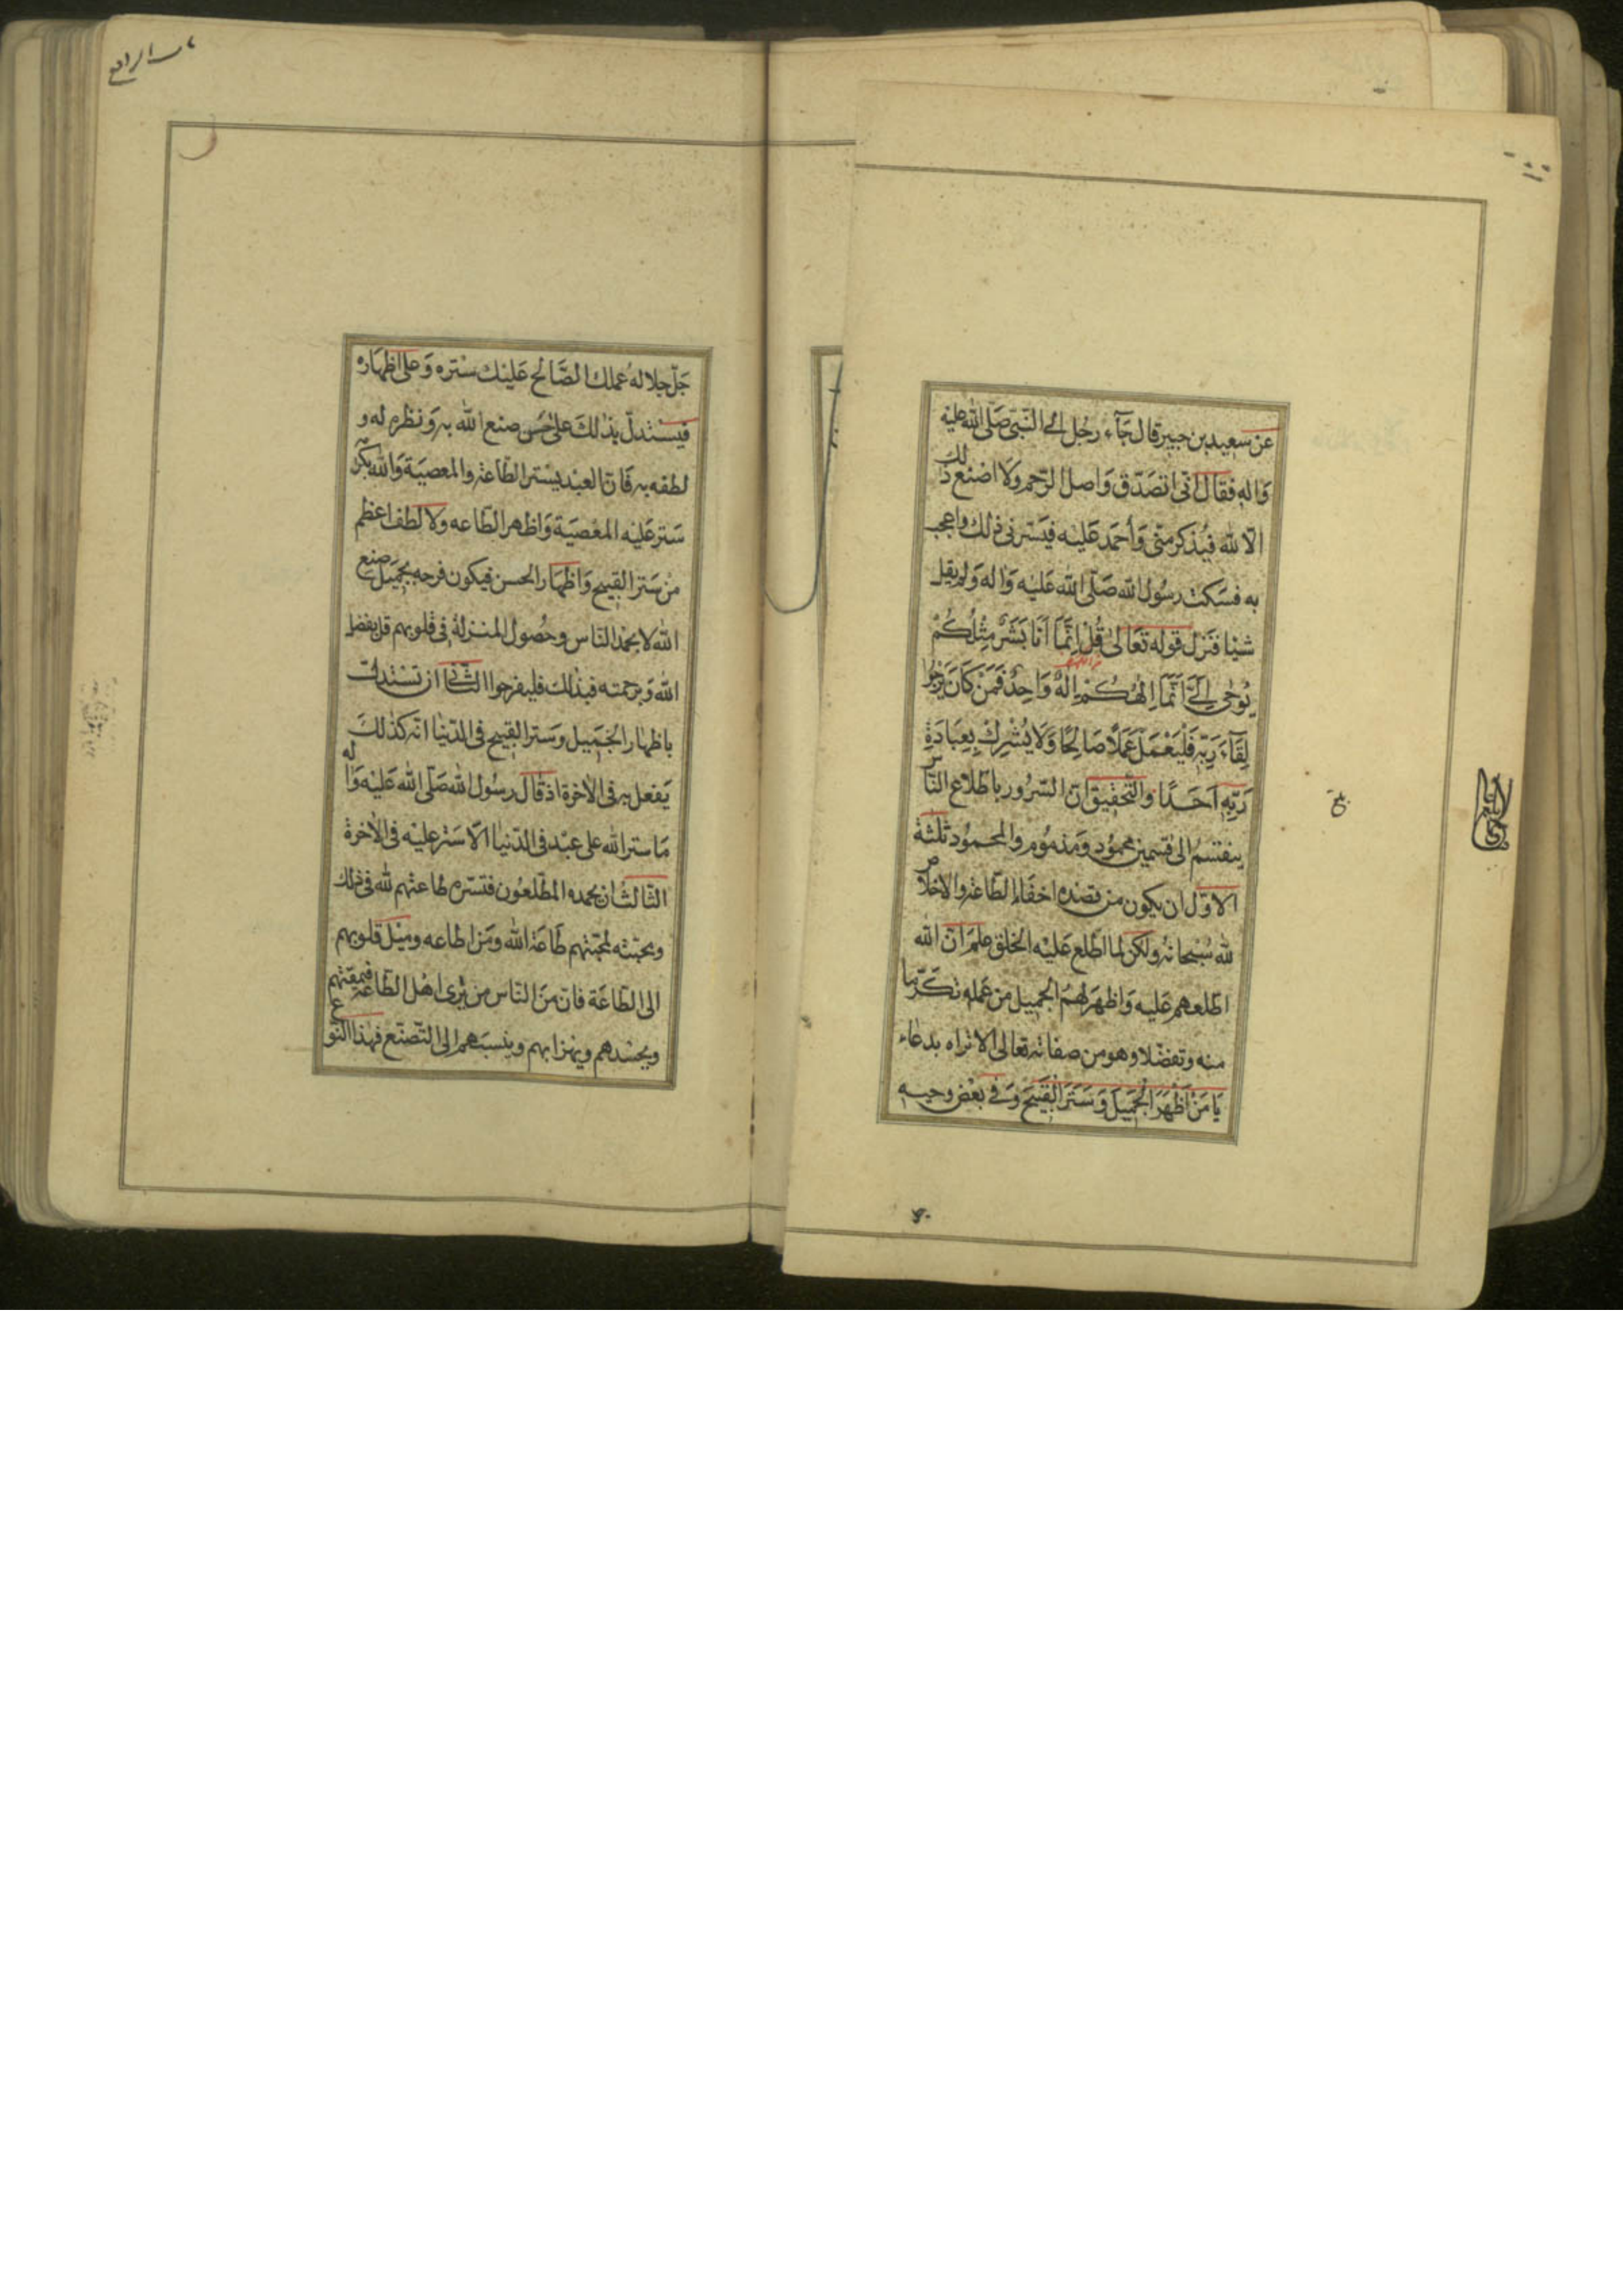 عن سعيد بن جبير قال جآء رجل الى النّبىّ صَلّى الله عليه
وَاله فقال انّى اتصَدّق وَاصل الرّحم ولَا اصْنع ذلك
الّا لله فيُذكر منّى وَأحمَد عَليْه فيَسرنى ذلك واعجب
به فسَكت رسُول الله صَلّى الله عَليْه وَاله وَلم يقل
شيْا فنَزل قوله تعَالى قُلْ اِنَّمَا اَنَا بَشَرٌ مِثْلُكُمْ
يُوحٰى اِلَىَّ اَنَّمَا اِلٰهُكُمْ اِلٰهٌ وَاحِدٌ فَمَنْ كَانَ يَرْجُوا
لِقَآءَ رَبِّهٖ فَلْيَعْمَلْ عَمَلًا صَالِحًا وَلَا يُشْرِكْ بِعِبَادَةِ
رَبِّهٖ اَحَدًا والتّحقيق انّ السّرُور باطّلاع النّاس
ينقسمُ الى قسمين محمُود وَمذمُوم والمحمُود ثلثة
الاوّل ان يكون من قصْده اخفاء الطّاعة والاخلاص
لله سُبْحانه ولكن لما اطّلع عَليْه الخلق علم انّ الله
اطلعهم عَليه وَاظهرَ لهمُ الجميل من عَمله تكرّما
منه وتفضّلا وهو من صفاته تعالى الا تراه بدعاء
يَا مَنْ اَظْهَرَ الْجَمِيلَ وَسَتَرَ الْقَبِيحَ وَفى بعْض وحيه
بلغ
جَلّ جلاله عملك الصَّالح عَليْك سَتْره وَعلى اظهَاره
فيَسْتدلّ بذلكَ على حُسن صنع الله به وَنظره له و
لطفه به فَانّ العبْد يسْتر الطّاعة والمعصيَة وَالله بكرمه
سَتر عَليْه المعْصيَة وَاظهر الطّاعه ولا لطف اعظم
من سَتر القبيح وَاظهَار الحسن فيكون فرحه بجَميل صنع
الله لا بحمْد النّاس وحُصول المنزلة فى قلوبهم قل بفضل
الله وَبرحمته فبذلك فليفرحوا الثّانى ان يسْتدلّ
باظهار الجَميل وسَتر القبيح فى الدّنيا انّه كذلكَ
يَفعل به فى الاخرة اذ قال رسُول الله صَلّى الله عَليْه وَاله
مَا ستر الله على عبْد فى الدّنيا الّا سَتر عليْه فى الاخرة
الثّالث ان يحمده المطّلعُون فتسّره طاعتهم لله فى ذلك
ومحبّته لمحبّتهم طَاعَة الله ومَن اطاعه وميْل قلوبهم
الى الطّاعَة فانّ منَ النّاس من يرى اهْل الطّاعة فيمقتهم
ويحسُدهم ويهزا بهم وينسبَهم الى التّصنّع فهذا النّوع